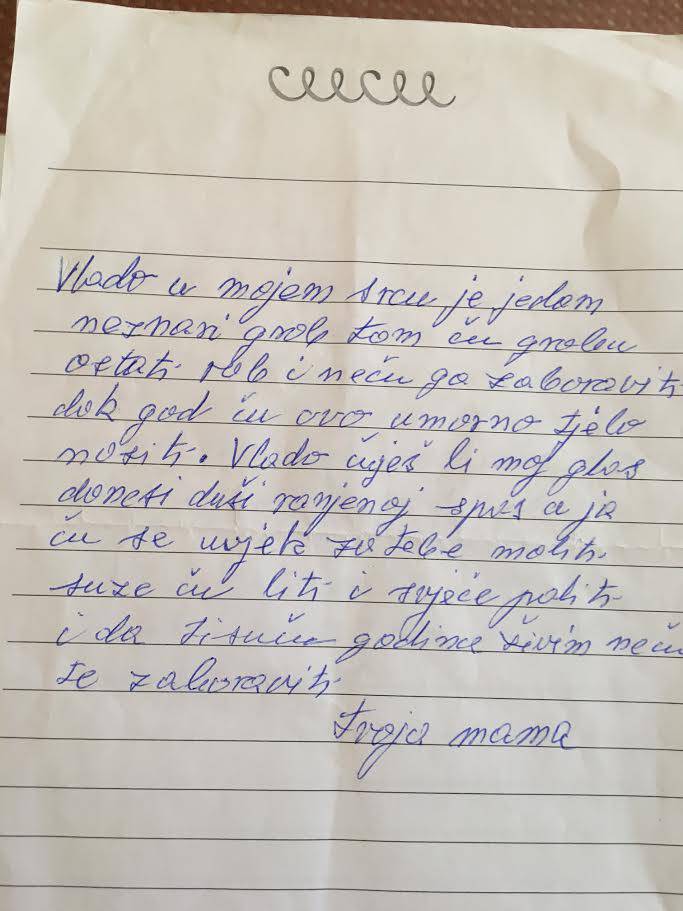 Vlado u mojem srcu je jedam
neznani grob tom ću grobu
ostati rob i neću ga zaboraviti
dok god ću ovo umorno tjelo
nositi. Vlado čuješ li moj glas
donesi duši ranjenoj spas a ja
ću se uvjek za tebe moliti
suze ću liti i svjeće paliti
i da tisuću godina živim neću
te zaboraviti
tvoja mama